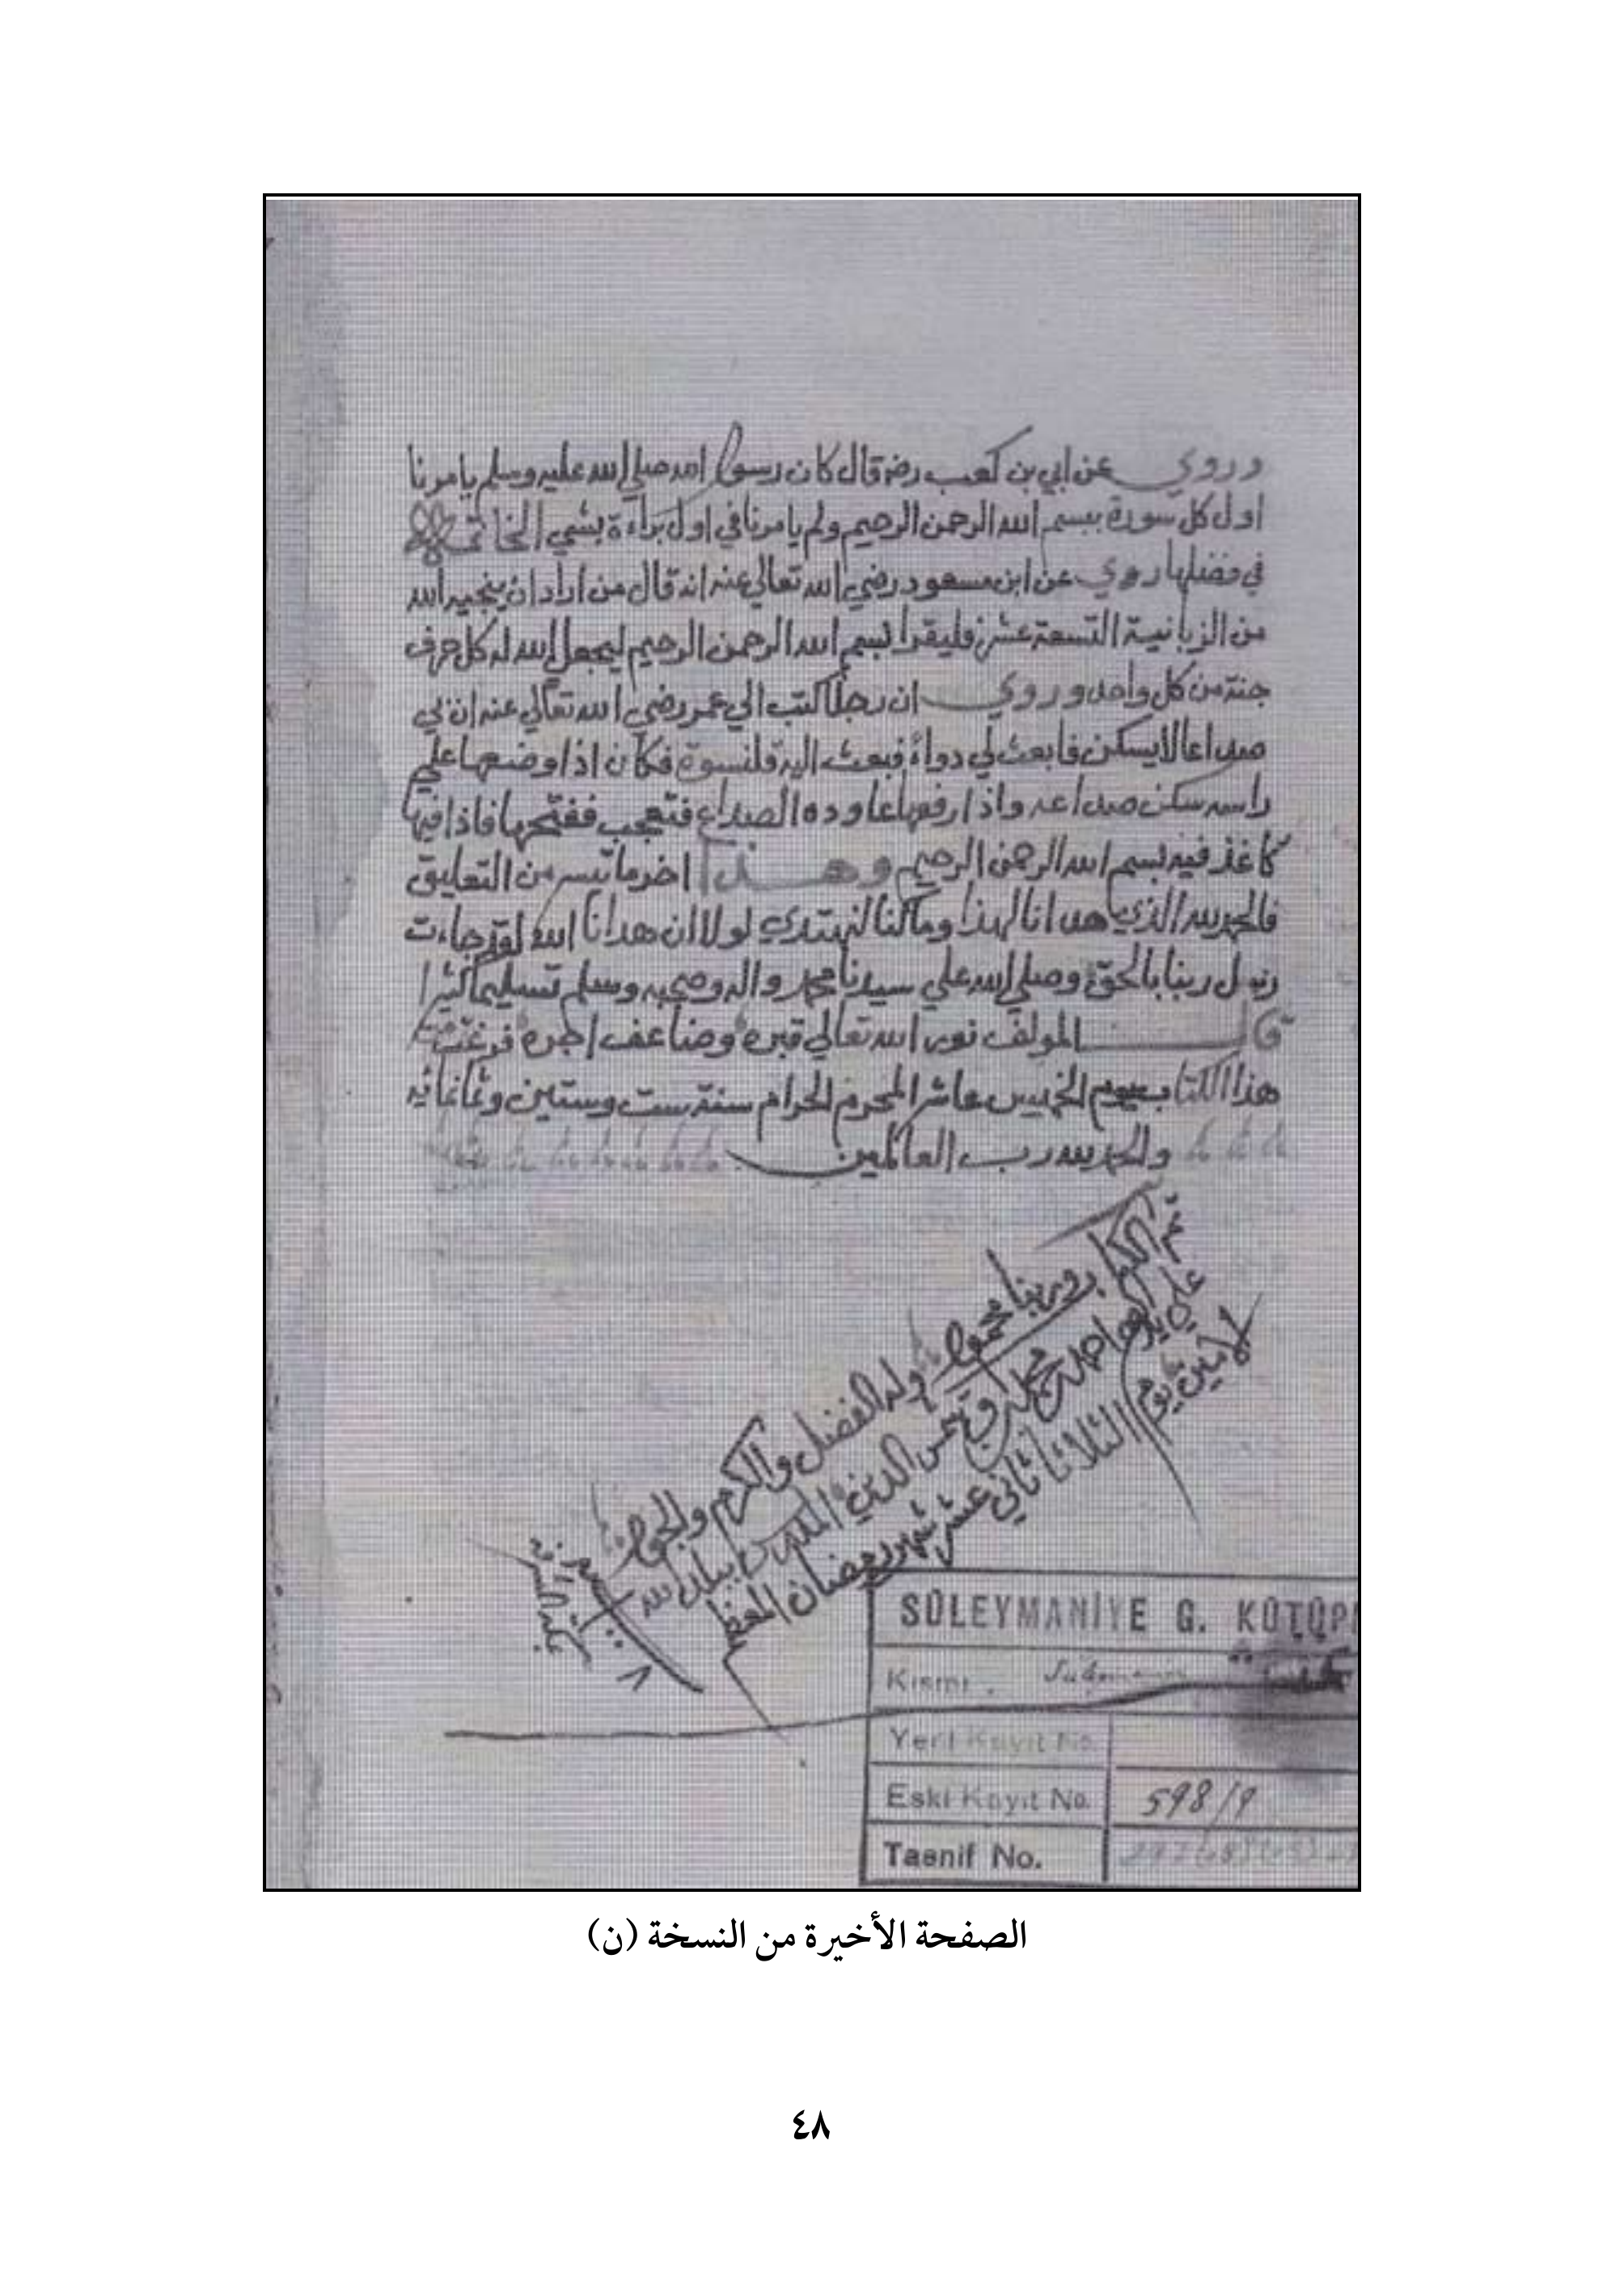 وروي عن ابي بن كعب رضه قال كان رسول الله صلي الله عليه وسلم يامرنا
اول كل سورة ببسم الله الرحمن الرحيم ولم يامرنا في اول براءة بشي الخاتمة
في فضلها روي عن ابن مسعود رضي الله تعالي عنه انه قال من اراد ان ينجيه الله
من الزبانية التسعة عشر فليقرا بسم الله الرحمن الرحيم ليجعل الله له كل حرف
جنة من كل واحد وروي ان رجلا كتب الي عمر رضي الله تعالي عنه ان بي
صداعا لا يسكن فابعث لي دواء فبعث اليه قلنسوة فكان اذا وضعها علي
راسه سكن صداعه واذا رفعها عاوده الصداع فتعجب ففتحها فاذا فيها
كاغذ فيه بسم الله الرحمن الرحيم وهذا اخر ما تيسر من التعليق
فالحمد لله الذي هدانا لهذا وما كنا لنهتدي لولا ان هدانا الله لقد جاءت
رسل ربنا بالحق وصلي الله علي سيدنا محمد واله وصحبه وسلم تسليما كثيرا
قال المولف نور الله تعالي قبره وضاعف اجره فرغت من
هذا الكتاب يوم الخميس عاشر المحرم الحرام سنة ست وستين وثمانمائه
والحمد لله رب العالمين
تم الكتاب وربنا محمود وله الفضل والكرم والجود
علي يد احمد شمس الدين
يوم الثلاثا ثاني عشر شهر رمضان المعظم
SÜLEYMANİYE G. KÜTÜP
Kısmı
Yeni Kayıt No.
Eski Kayıt No. 598/9
Tasnif No.
الصفحة الأخيرة من النسخة (ن)
٤٨